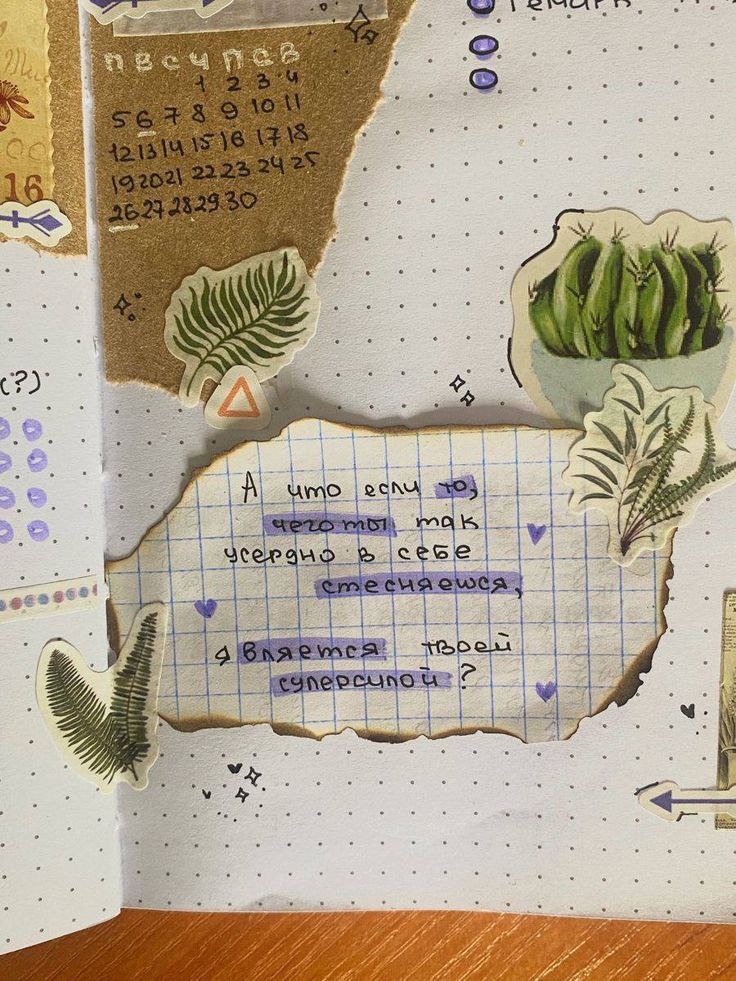 п в с ч п с в
1 2 3 4
5 6 7 8 9 10 11
12 13 14 15 16 17 18
19 20 21 22 23 24 25
26 27 28 29 30
16
(?)
А что если то,
чего ты так
усердно в себе
стесняешся,
является твоей
суперсилой?